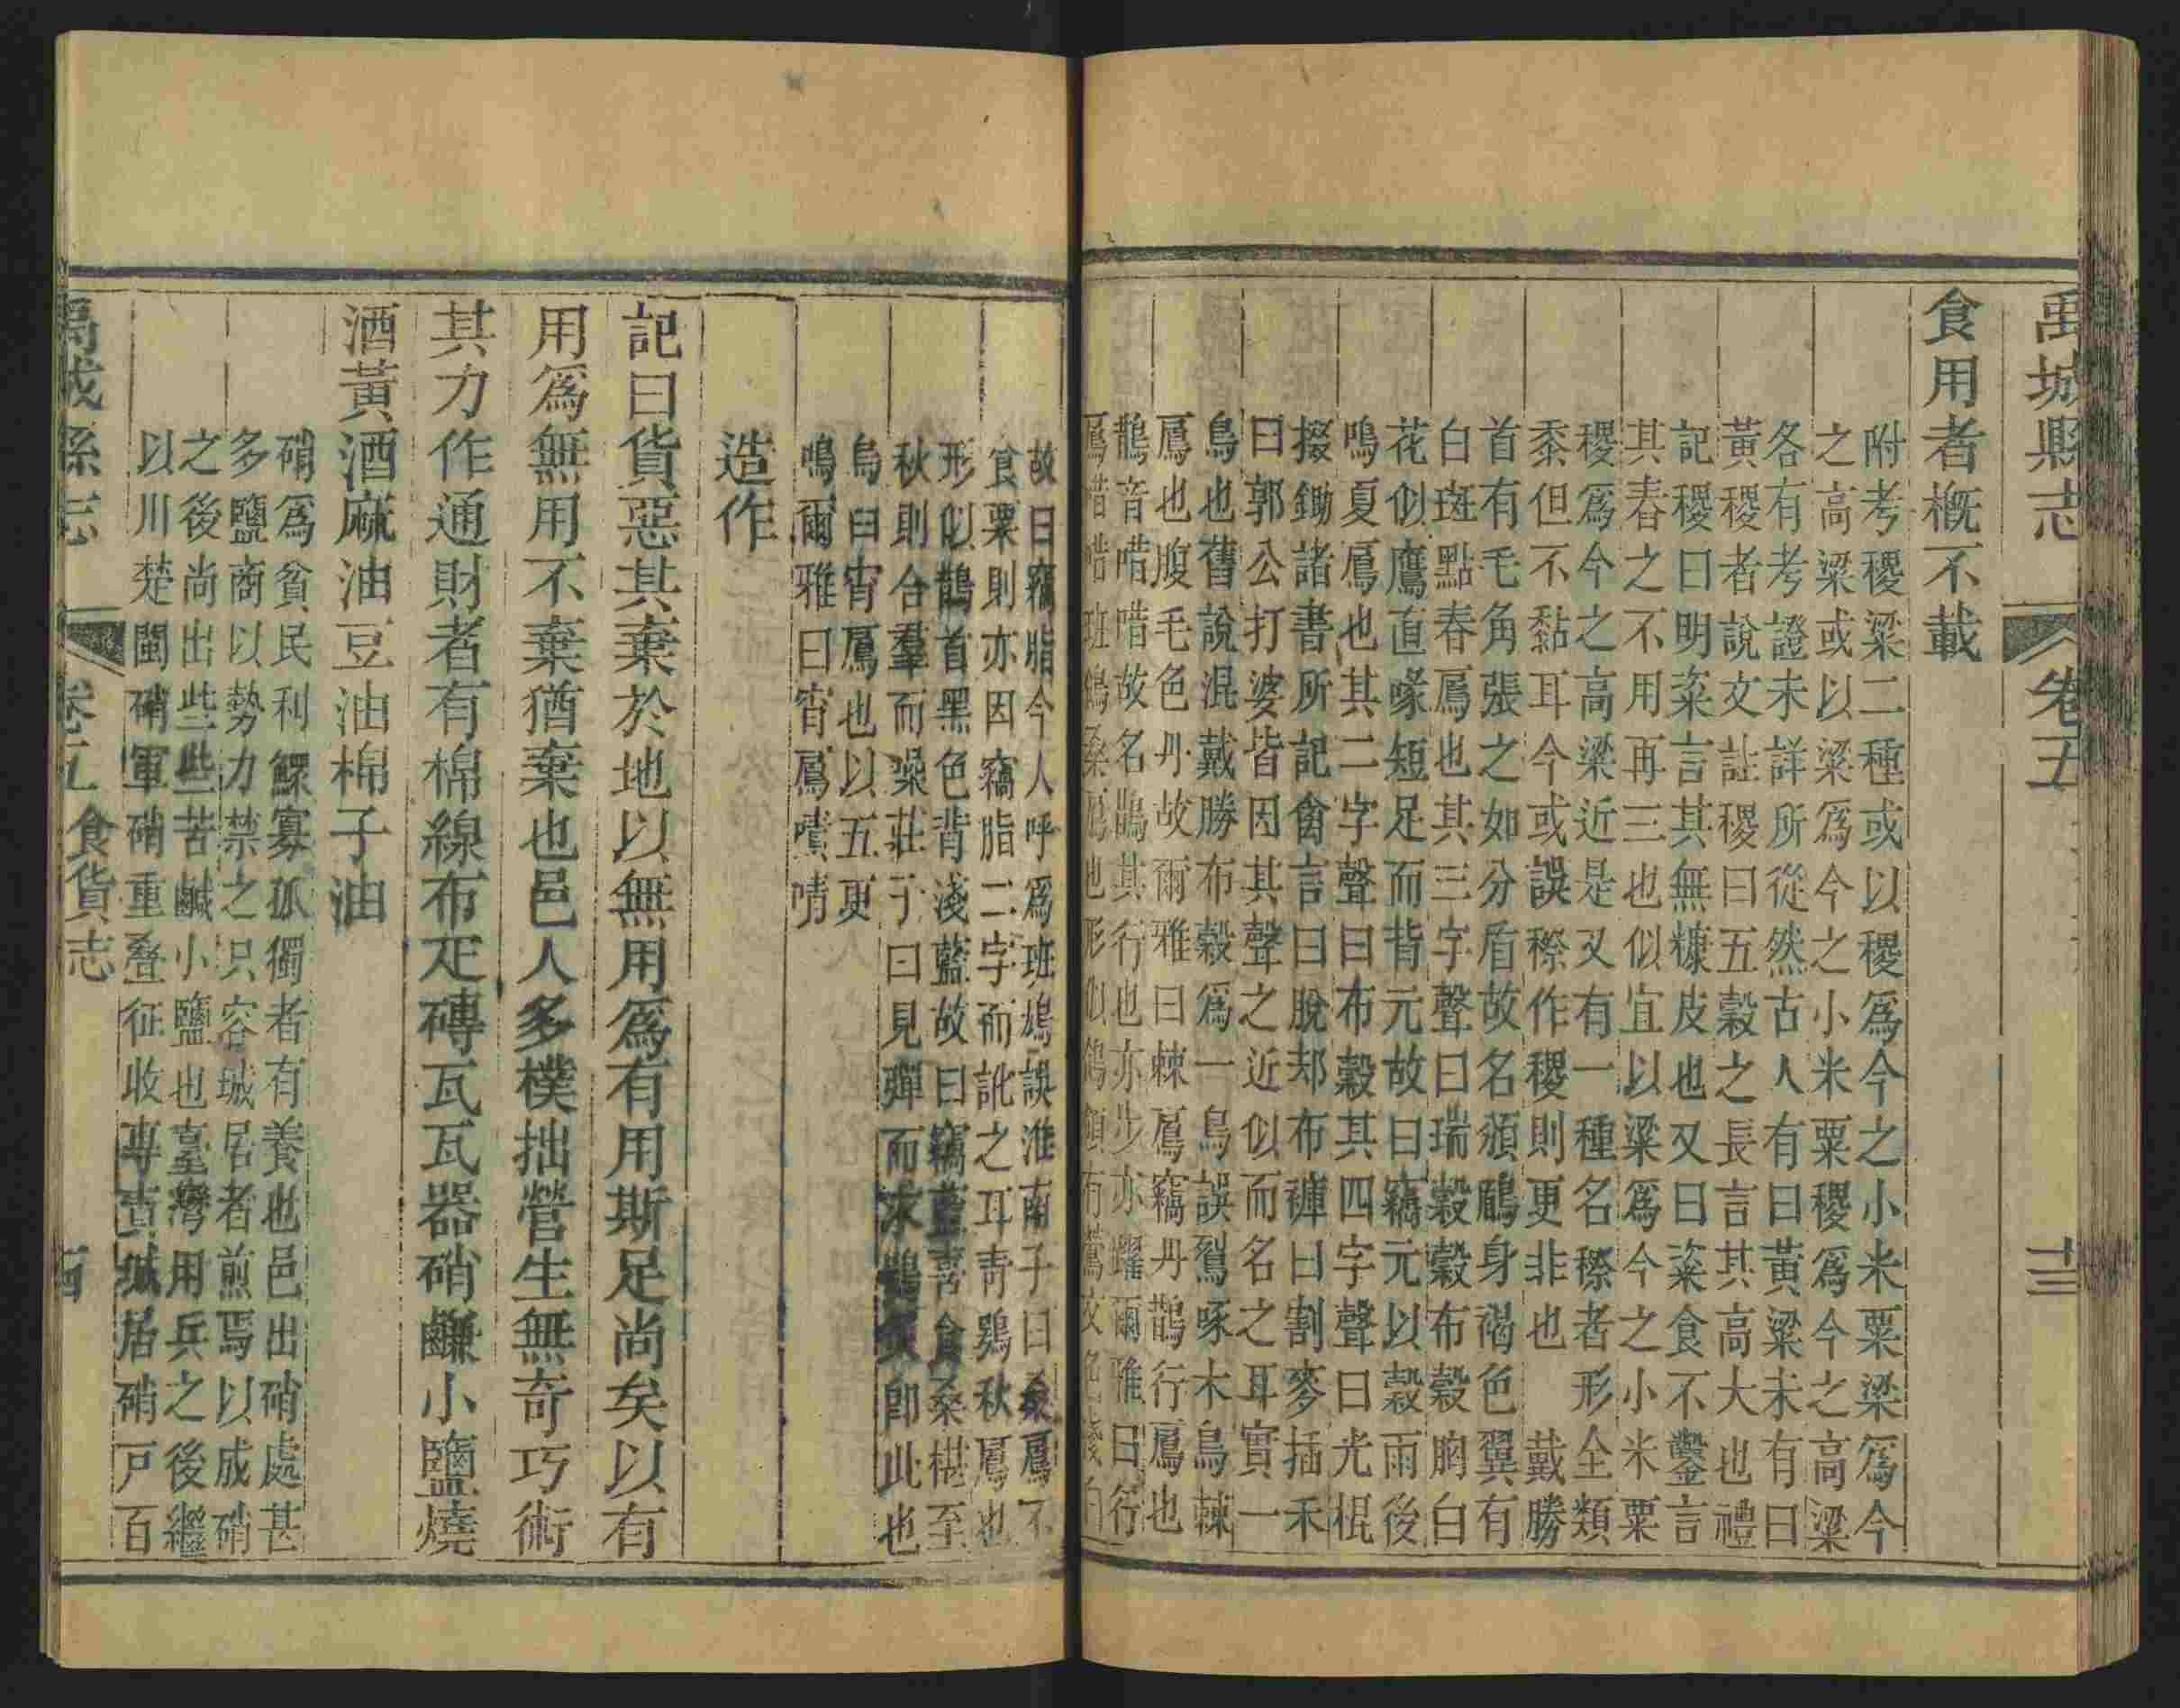 禹城縣志
卷五
十三
食用者槪不載
附考稷粱二種或以稷爲今之小米粟梁爲今
之高梁或以粱爲今之小米粟稷爲今之高梁
各有考證未詳所從然古人有曰黃粱未有曰
黃稷者說文註稷曰五穀之長言其高大也禮
記稷曰明粢言其無糠皮也又曰粢食不鑿言
其舂之不用再三也似宜以粱爲今之小米粟
稷爲今之高梁近是又有一種名穄者形全類
黍但不黏耳今或誤穄作稷則更非也　戴勝
首有毛角張之如分盾故名頒鶝身褐色翼有
白斑點春鳸也其三字聲曰瑞榖榖布穀胸白
花似鷹直喙短足而背元故曰竊元以穀雨後
鳴夏鳸也其二字聲曰布穀其四字聲曰光棍
掇鋤諸書所記禽言曰脫郏布褲曰割麥插禾
曰郭公打婆皆因其聲之近似而名之耳實一
鳥也舊說混戴勝布穀爲一鳥誤鴷啄木鳥棘
鳸也腹毛色丹故爾雅曰棘鳸竊丹鵲行鳸也
鵲音唶唶故名鵲其行也亦步亦躍爾雅曰行
鳸唶唶班鳩桑鳸也形似鴿頷有
故曰竊脂今人呼爲班鳩誤淮南子曰桑鳸不
食粟則亦因竊脂二字而訛之耳靑鶪秋鳸也
形似鵲首黑色背淺藍故曰竊藍喜食桑椹至
秋則合羣而噪莊子曰見彈而求鴞炙卽此也
烏臼宵鳸也以五更
鳴爾雅曰宵鳸嘖嘖
造作
記曰貨惡其棄於地以無用爲有用斯足尚矣以有
用爲無用不棄猶棄也邑人多樸拙營生無奇巧術
其力作通財者有棉線布疋磚瓦瓦器硝鹻小鹽燒
酒黃酒麻油豆油棉子油
硝爲貧民利鰥寡孤獨者有養也邑出硝處甚
多鹽商以勢力禁之只容城居者煎焉以成硝
之後尚出些些苦鹹小鹽也臺灣用兵之後繼
以川楚閩硝軍硝重叠征收專責城居硝戸百
禹城縣志
卷五
食貨志